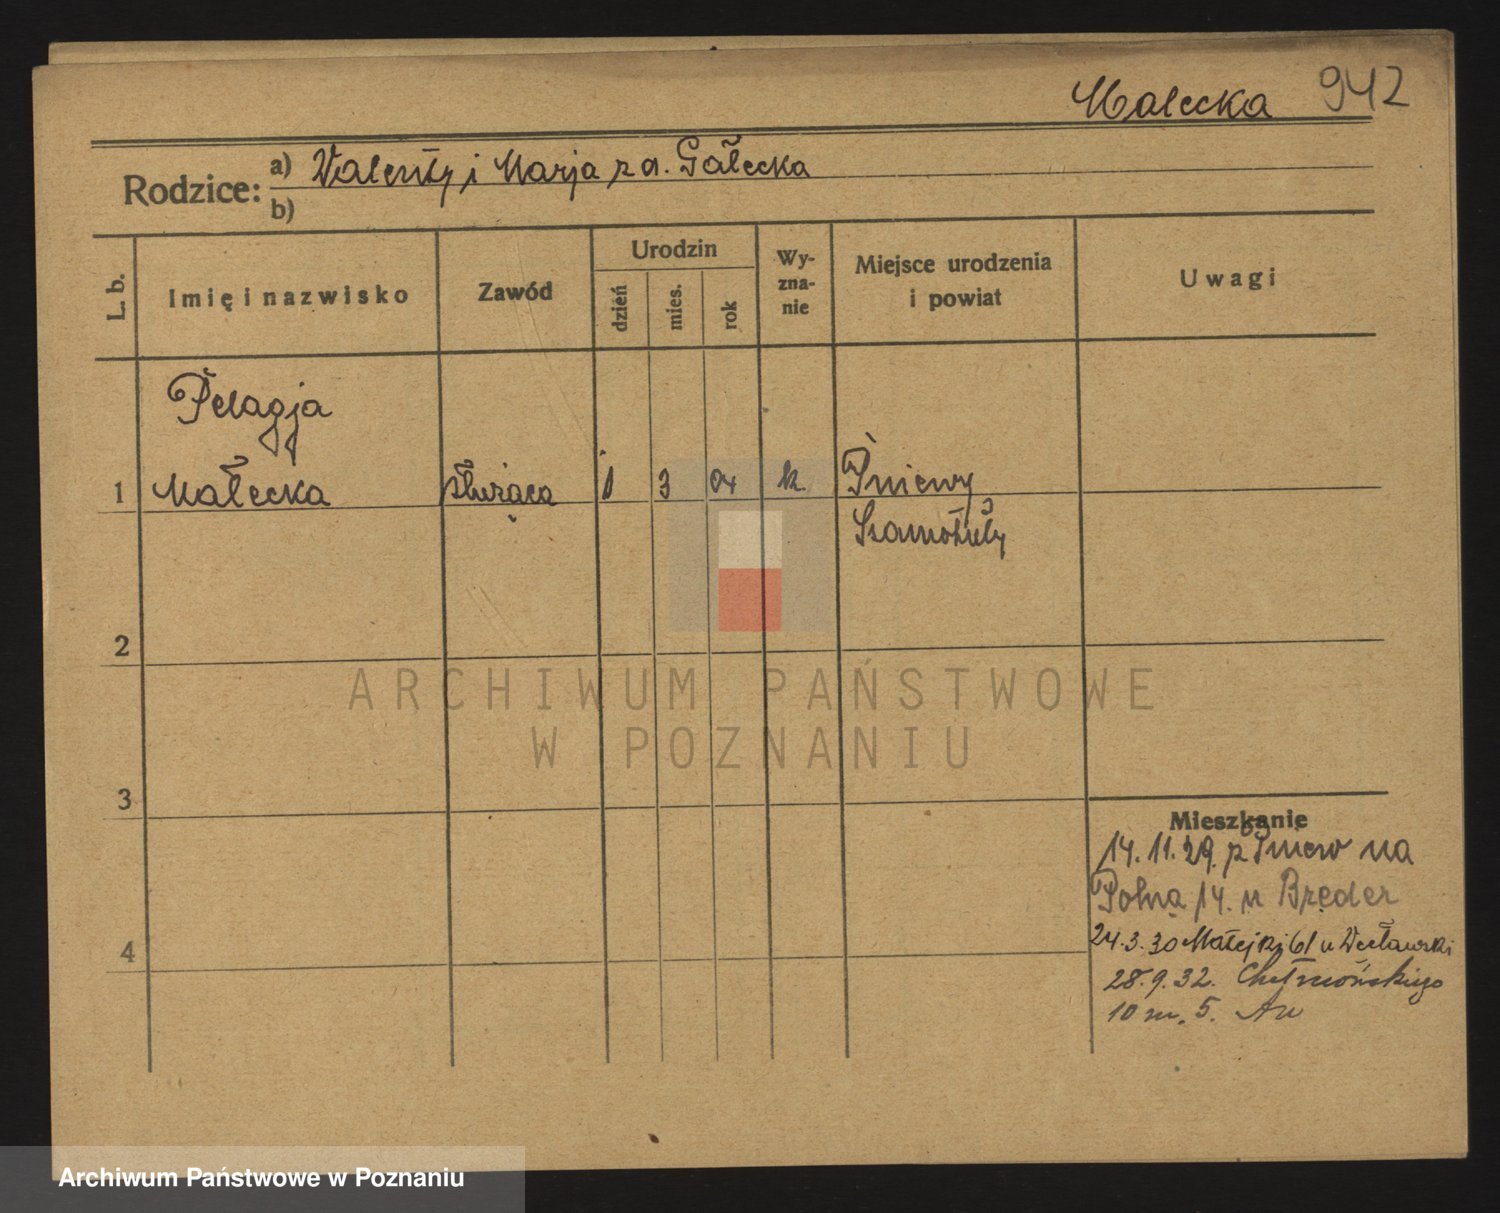 Małecka 942
Rodzice: a) Walenty i Marja z d. Gałecka
b)
L. b. Imię i nazwisko Zawód Urodzin dzień mies. rok Wy-zna-nie Miejsce urodzenia i powiat Uwagi
Pelagja
1 Małecka służąca 1 3 04 k. Pniewy
Szamotuły
2
ARCHIWUM PAŃSTWOWE
W POZNANIU
3
Mieszkanie
14.11.29. z Pniew na
Polną 14. u Brzeder
4
24.3.30 Matejki 61 u Węcławski
28.9.32. Chełmońskiego
10 m. 5.
Archiwum Państwowe w Poznaniu